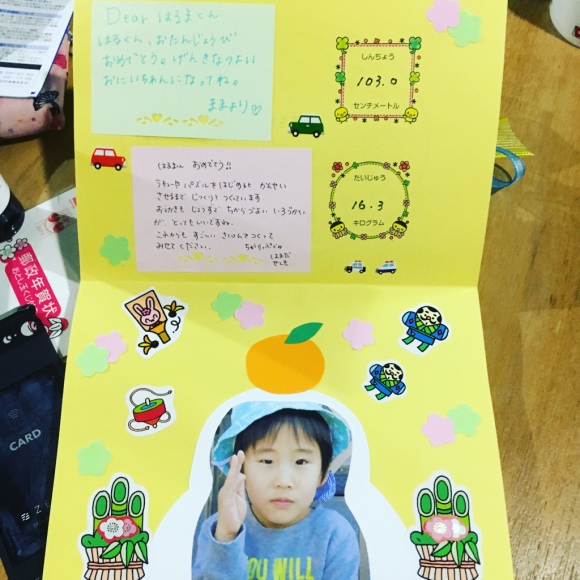 Dear はるまくん
はるくん、おたんじょうび
おめでとう。げんきなつよい
おにいちゃんになってね。
ままより♡
しんちょう
103.0
センチメートル
はるまくん おめでとう!!
パズルをはじめ
さいごまで じっくりと つくっています
おえかきも じょうずで ちからづよい いろづかい
が、とってもいいですね。
これからも すごい さくひんをつくって
みせてください。
たいじゅう
16.3
キログラム
郵政年賀状
CARD
YOU WILL